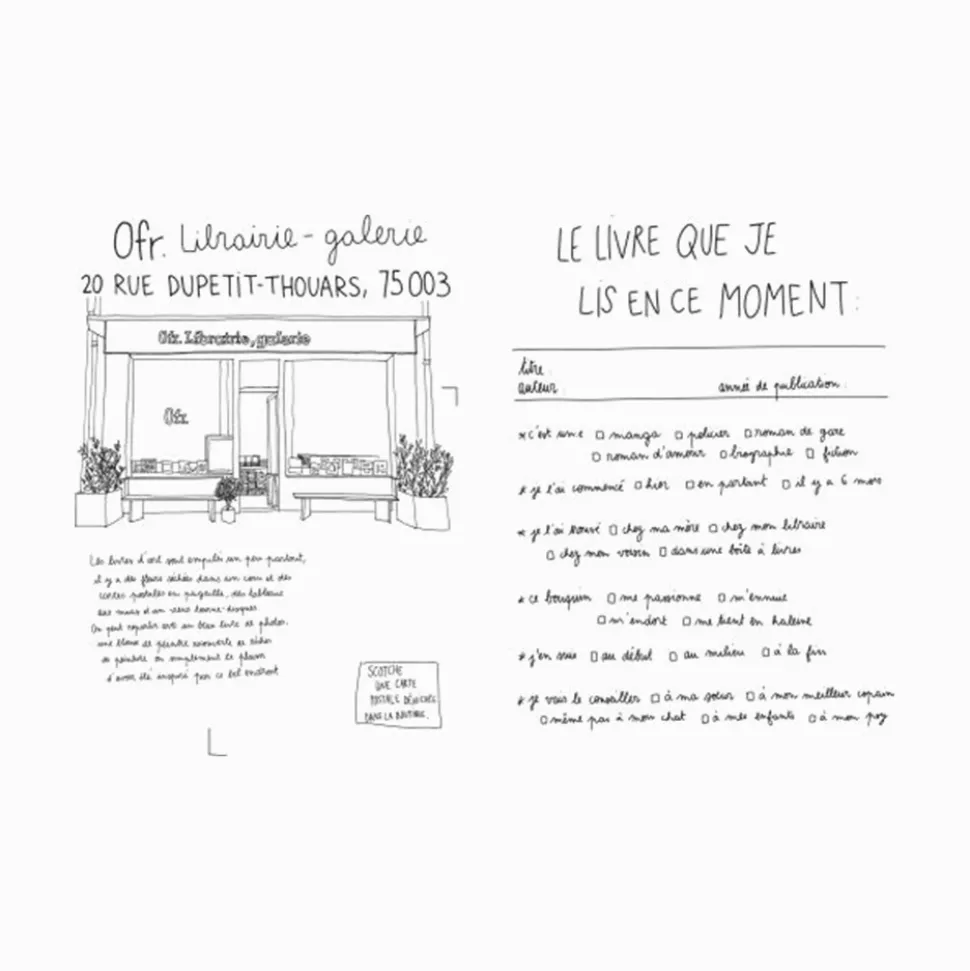 Ofr. Librairie-galerie
20 RUE DUPETIT-THOUARS, 75003
Ofr. Librairie, galerie
Ofr.
Les livres d'art sont empilés un peu partout,
il y a des fleurs séchées dans un coin et des
cartes postales en pagaille, des tableaux
aux murs et un vieux tourne-disques.
On peut repartir avec un beau livre de photos,
une blouse de peintre recouverte de tâches
de peinture ou simplement le plaisir
d'avoir été inspiré par ce bel endroit
SCOTCHE
UNE CARTE
POSTALE DÉNICHÉE
DANS LA BOUTIQUE.
LE LIVRE QUE JE
LIS EN CE MOMENT:
titre:
auteur: année de publication:
*c'est une □ manga □ policier □ roman de gare
□ roman d'amour □ biographie □ fiction
* je l'ai commencé □ hier □ en partant □ il y a 6 mois
* je l'ai trouvé □ chez ma mère □ chez mon libraire
□ chez mon voisin □ dans une boîte à livres
* ce bouquin □ me passionne □ m'ennuie
□ m'endort □ me tient en haleine
* j'en suis □ au début □ au milieu □ à la fin
* je vais le conseiller □ à ma sœur □ à mon meilleur copain
□ même pas à mon chat □ à mes enfants □ à mon psy